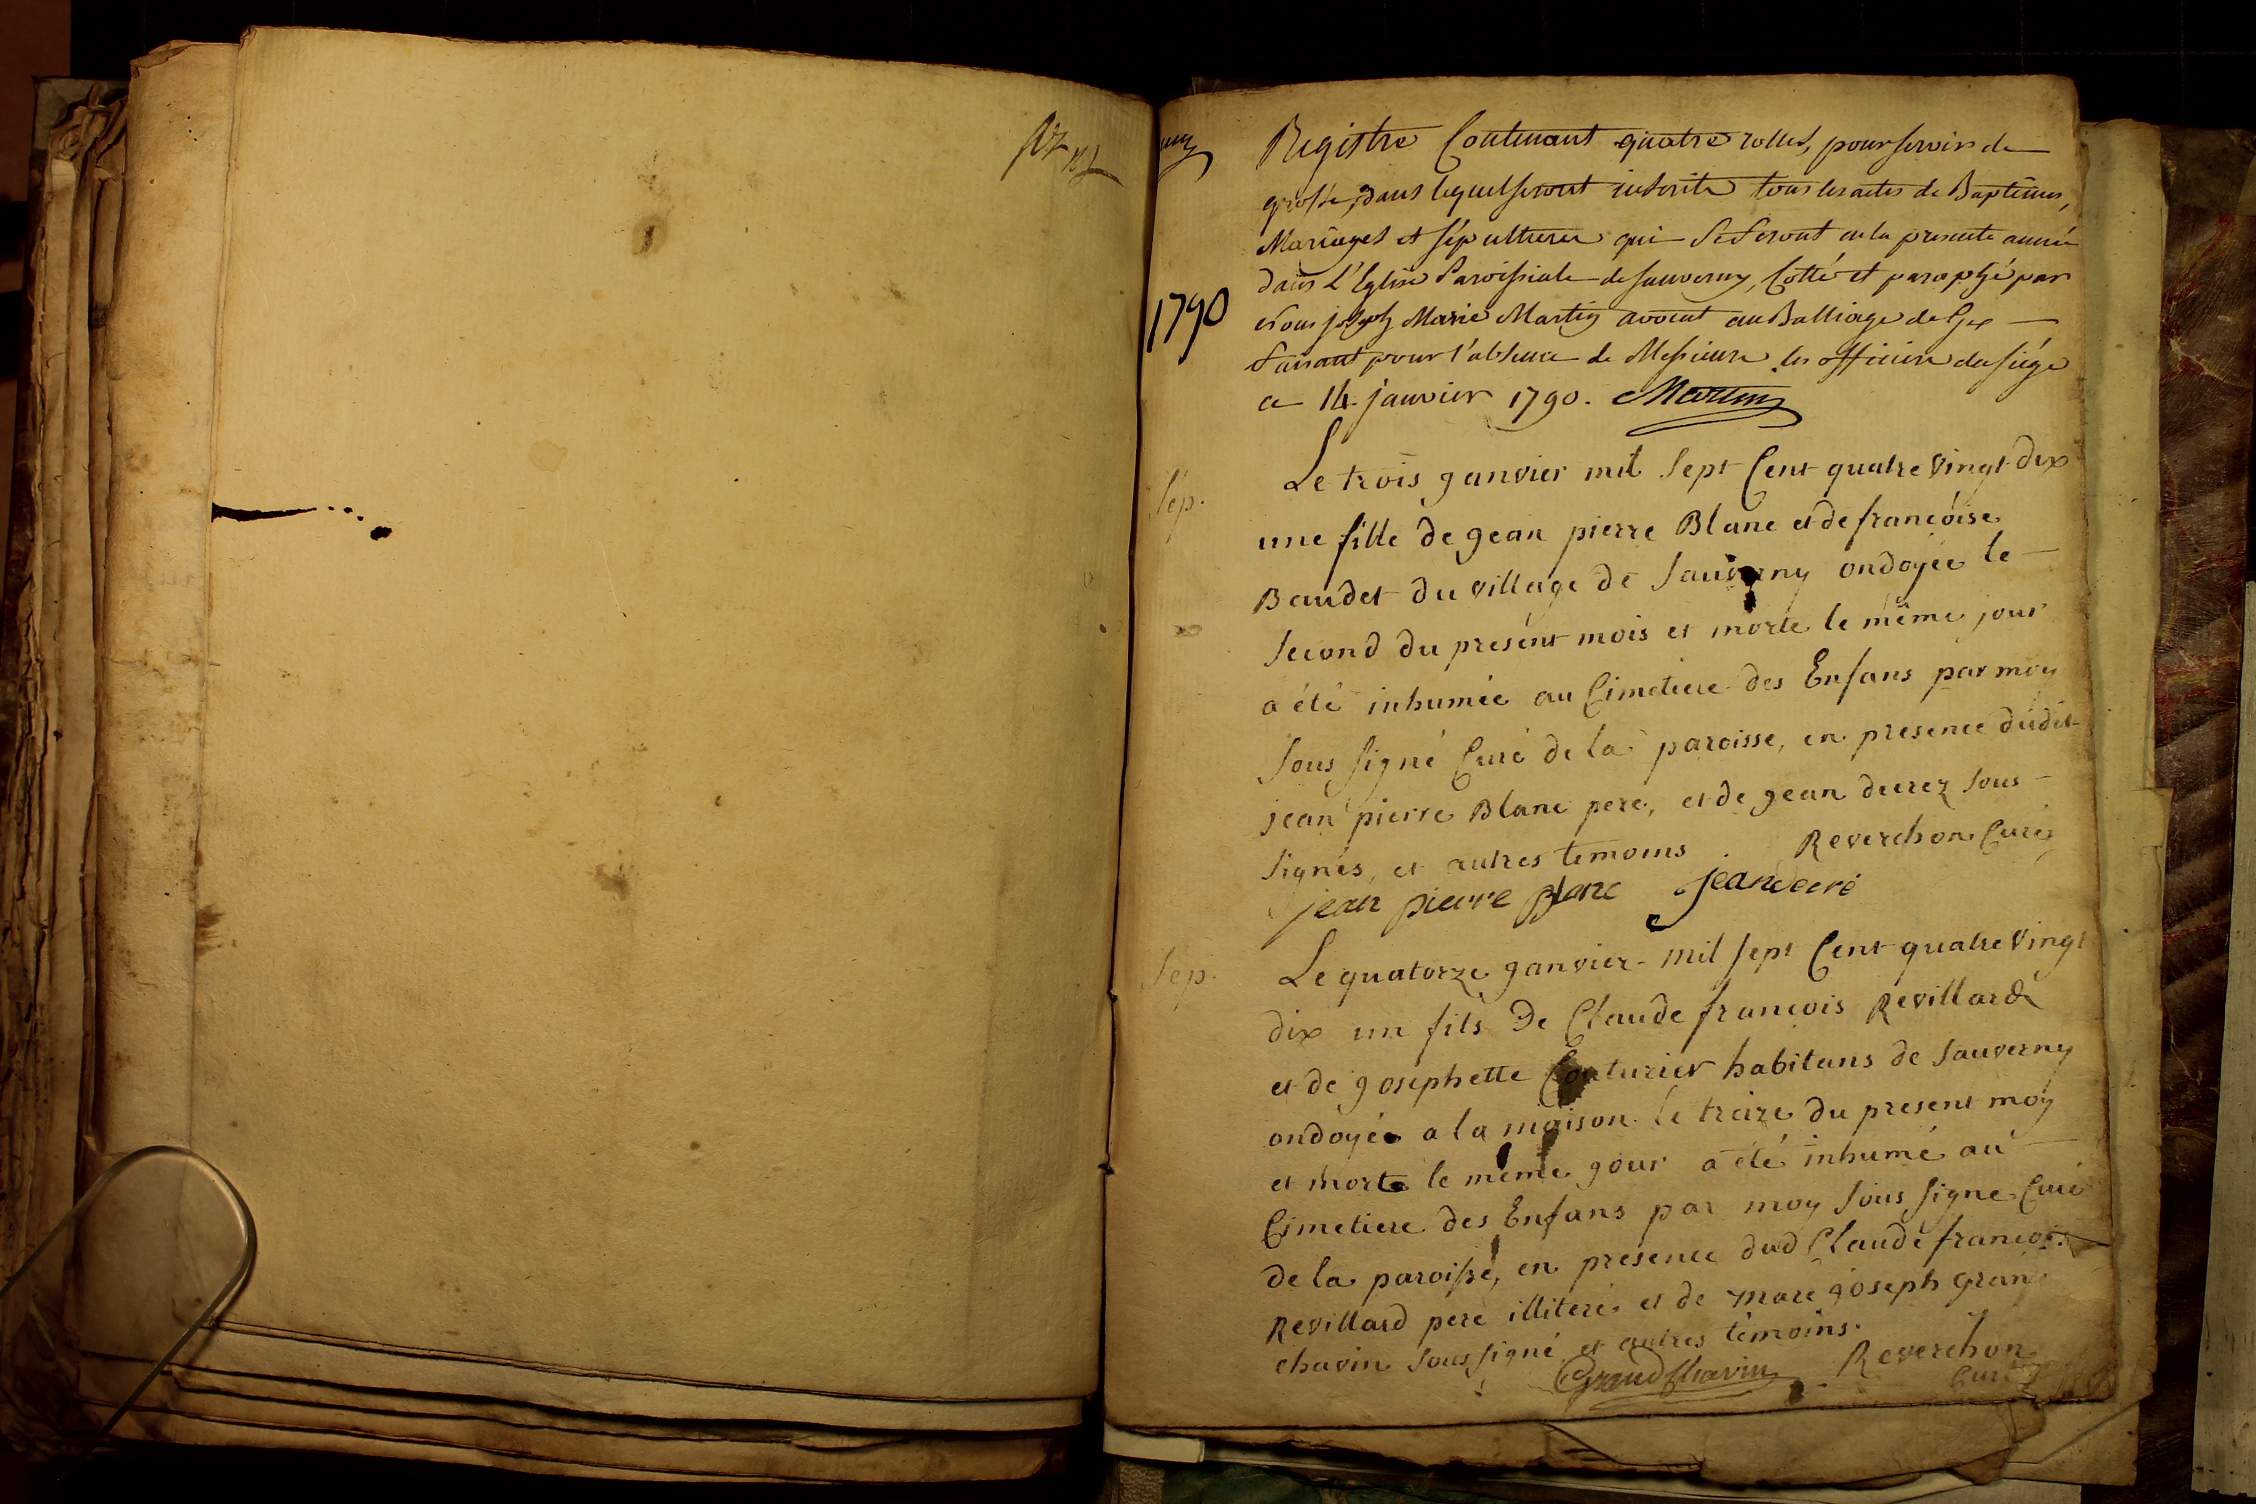 Registre Contenant quatre rolles, pour servir de
grosse, dans lequel seront inscrits tous les actes de Baptêmes,
Mariages et sépultures qui se feront en la presente année
dans L'Eglise Paroissiale de sauverny, Cotté et paraphé par
Nous joseph Marie Martin avocat au Balliage de Gex
1790
faisant pour l'absence de Messieurs les officiers du siége
ce 14 janvier 1790. Martin
Sep.
Le trois ganvier mil sept Cent quatre vingt dix
une fille de gean pierre Blanc et de francoise
Baudet du village de sauverny ondoyée le
second du present mois et morte le même jour
a été inhumée au Cimetiere des Enfans par moy
sous signé Curé de la paroisse, en presence dudit
jean pierre Blanc pere, et de gean decrez sous
signés, et autres temoins Reverchon Curé
jean pierre Blanc jean decré
Sep.
Le quatorze ganvier mil sept Cent quatre vingt
dix un fils De Claude francois Revillard
et de gosephette Couturier habitans de sauverny
ondoyé a la maison le treize du present moy
et mort le même gour a été inhumé au
Cimetiere des Enfans par moy sous signe Curé
de la paroisse, en presence dud Claude francois
Revillard pere illiteré et de marc goseph gran
chavin sous signé et autres témoins.
Grandchavin Reverchon
Curé